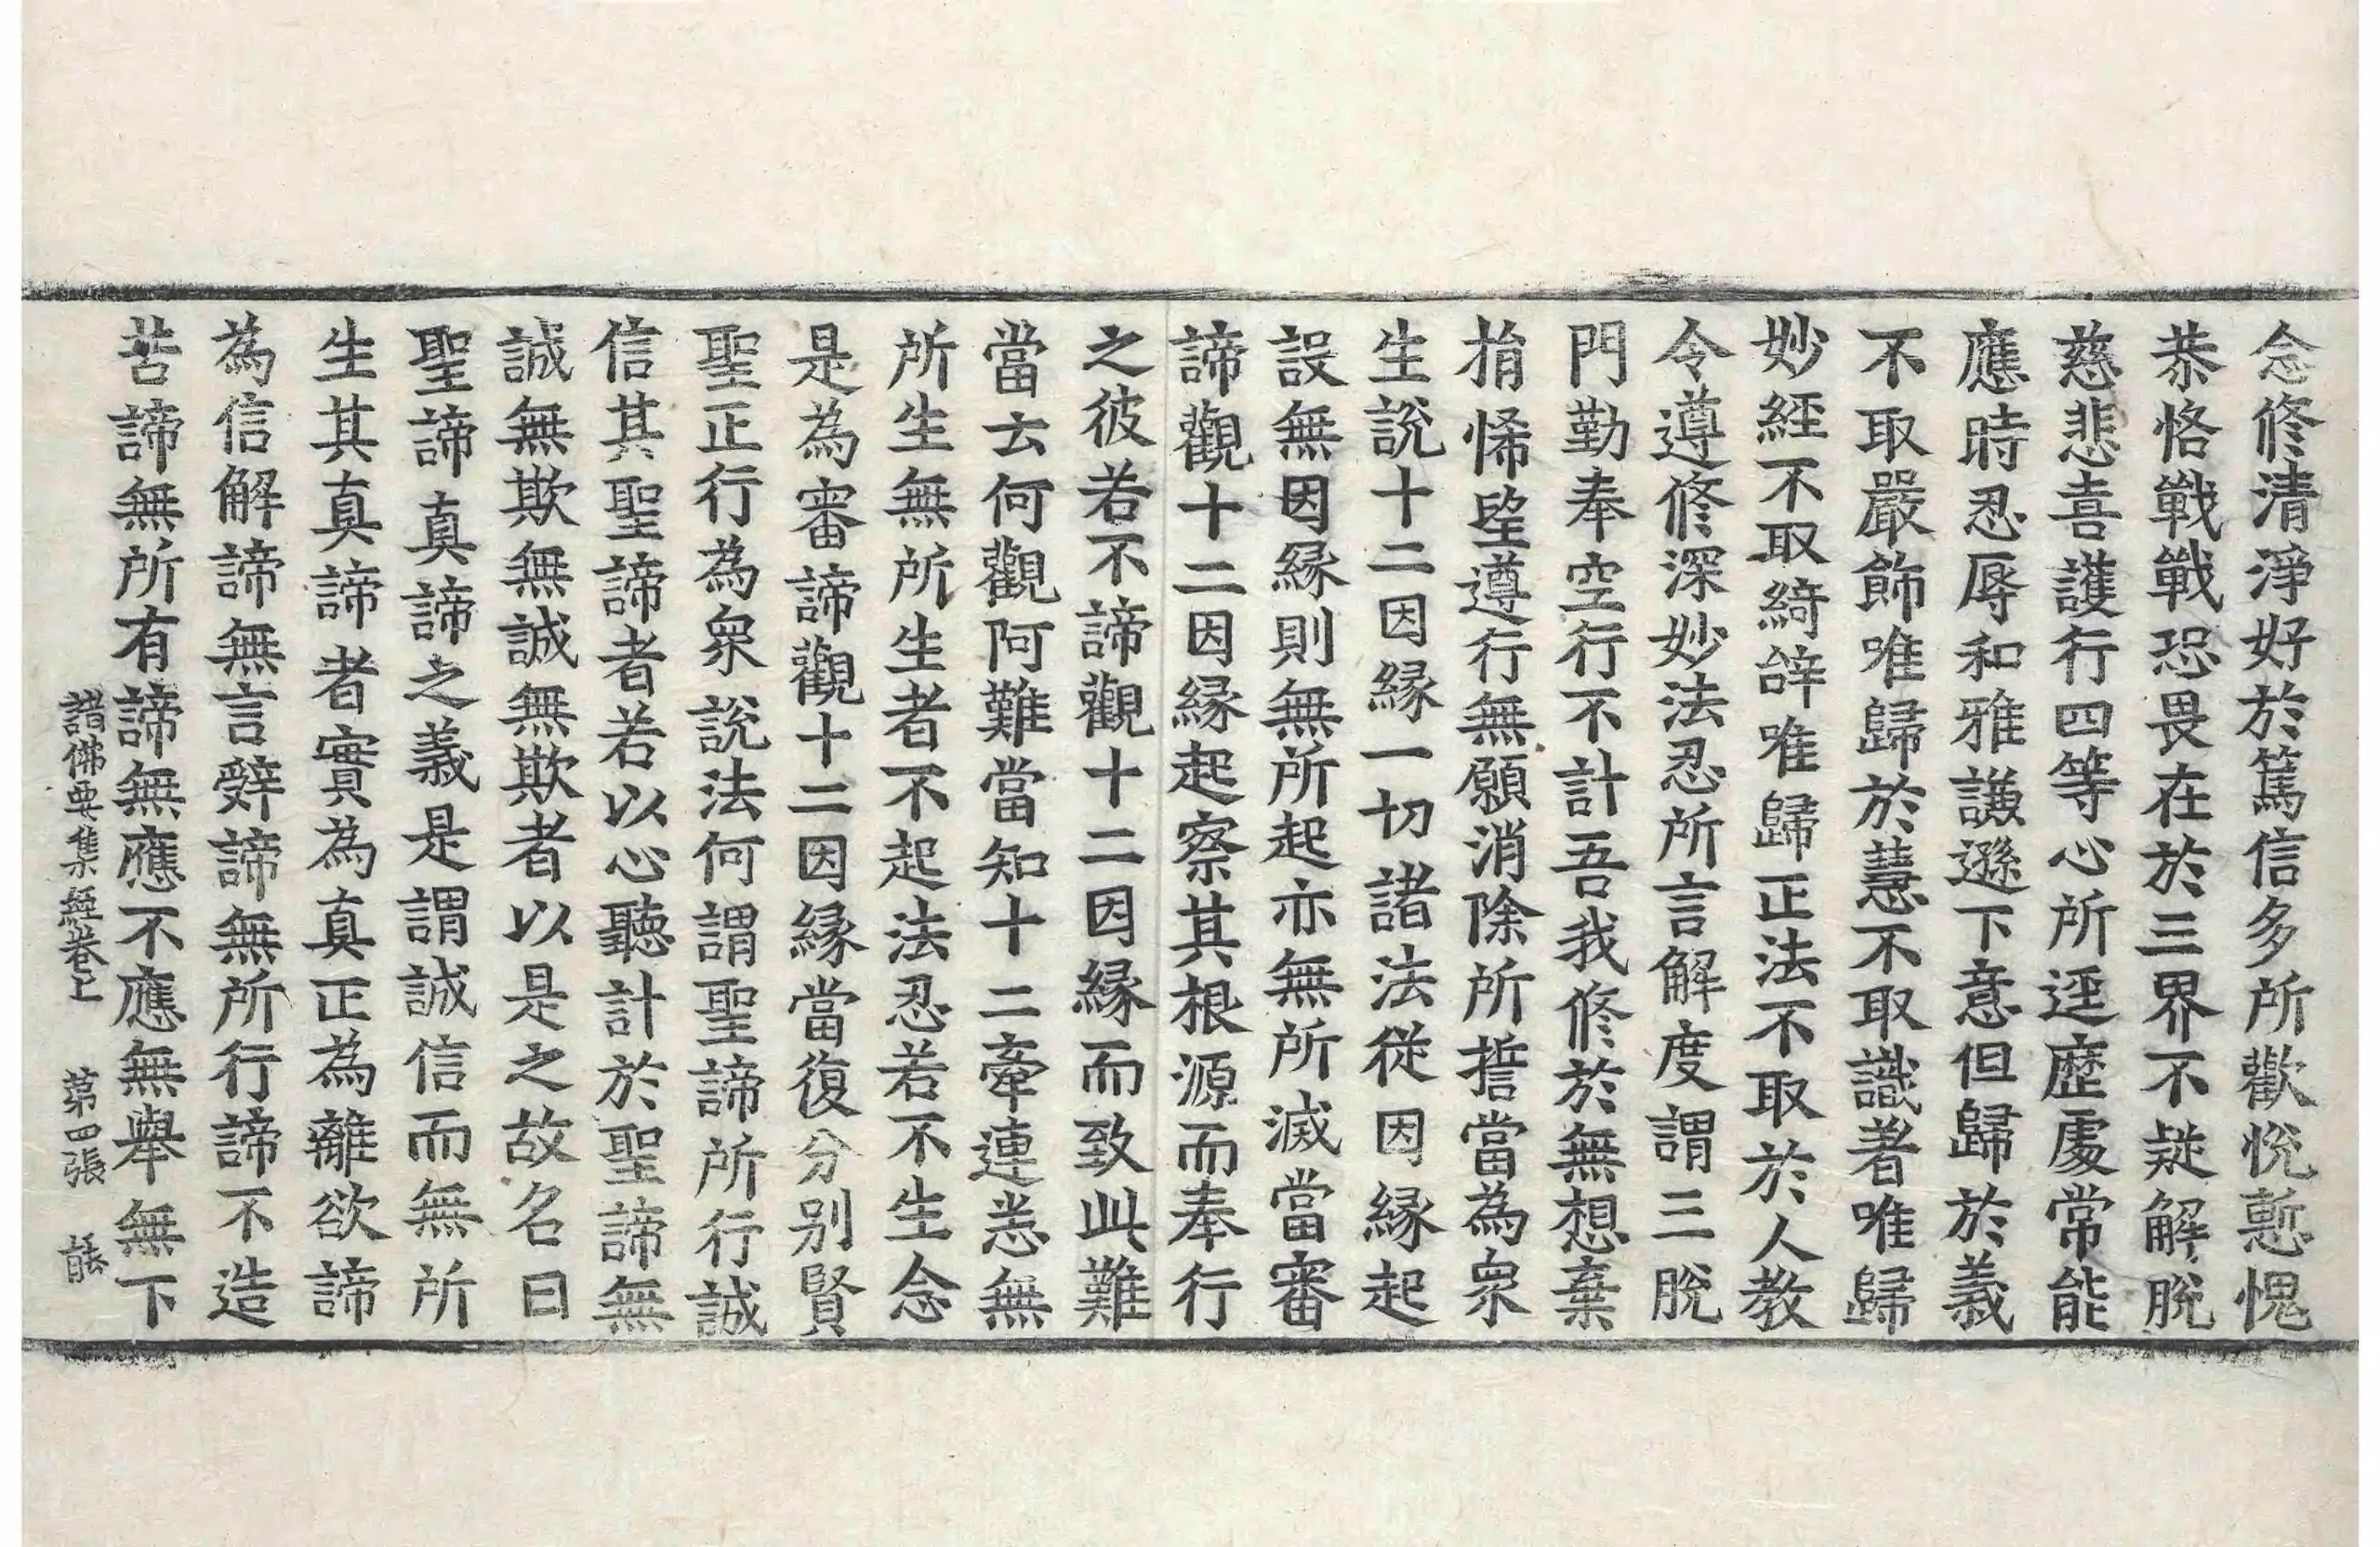 念修清淨好於篤信多所歡悅慙愧
恭恪戰戰恐畏在於三界不疑解脫
慈悲喜護行四等心所遥歷處常能
應時忍辱和雅謙遜下意但歸於義
不取嚴飾唯歸於慧不取識著唯歸
妙經不取綺辝唯歸正法不取於人教
令遵修深妙法忍所言解度謂三脫
門勤奉空行不計吾我修於無想棄
捐悕望遵行無願消除所誓當為衆
生說十二因緣一切諸法從因緣起
設無因緣則無所起亦無所滅當審
諦觀十二因緣起察其根源而奉行
之彼若不諦觀十二因緣而致此難
當去何觀阿難當知十二牽連悉無
所生無所生者不起法忍若不生念
是為審諦觀十二因緣當復分別賢
聖正行為衆說法何謂聖諦所行誠
信其聖諦者若以心聽計於聖諦無
誠無欺無誠無欺者以是之故名曰
聖諦真諦之義是謂誠信而無所
生其真諦者實為真正為離欲諦
為信解諦無言辤諦無所行諦不造
苦諦無所有諦無應不應無舉無下
諸佛要集經卷上 第四張